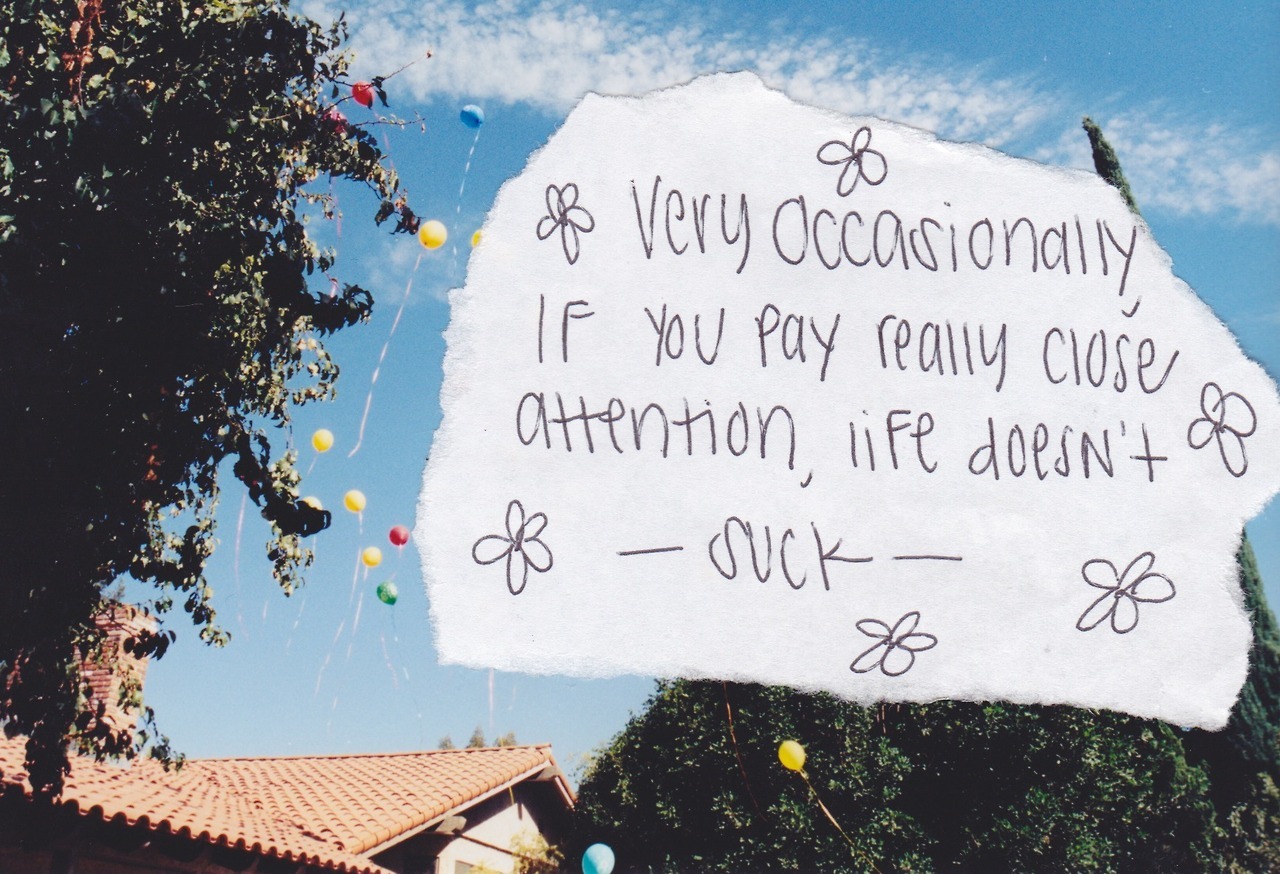 Very Occasionally,
IF YOU Pay really close
attention, liFe doesN't
— SUCK —